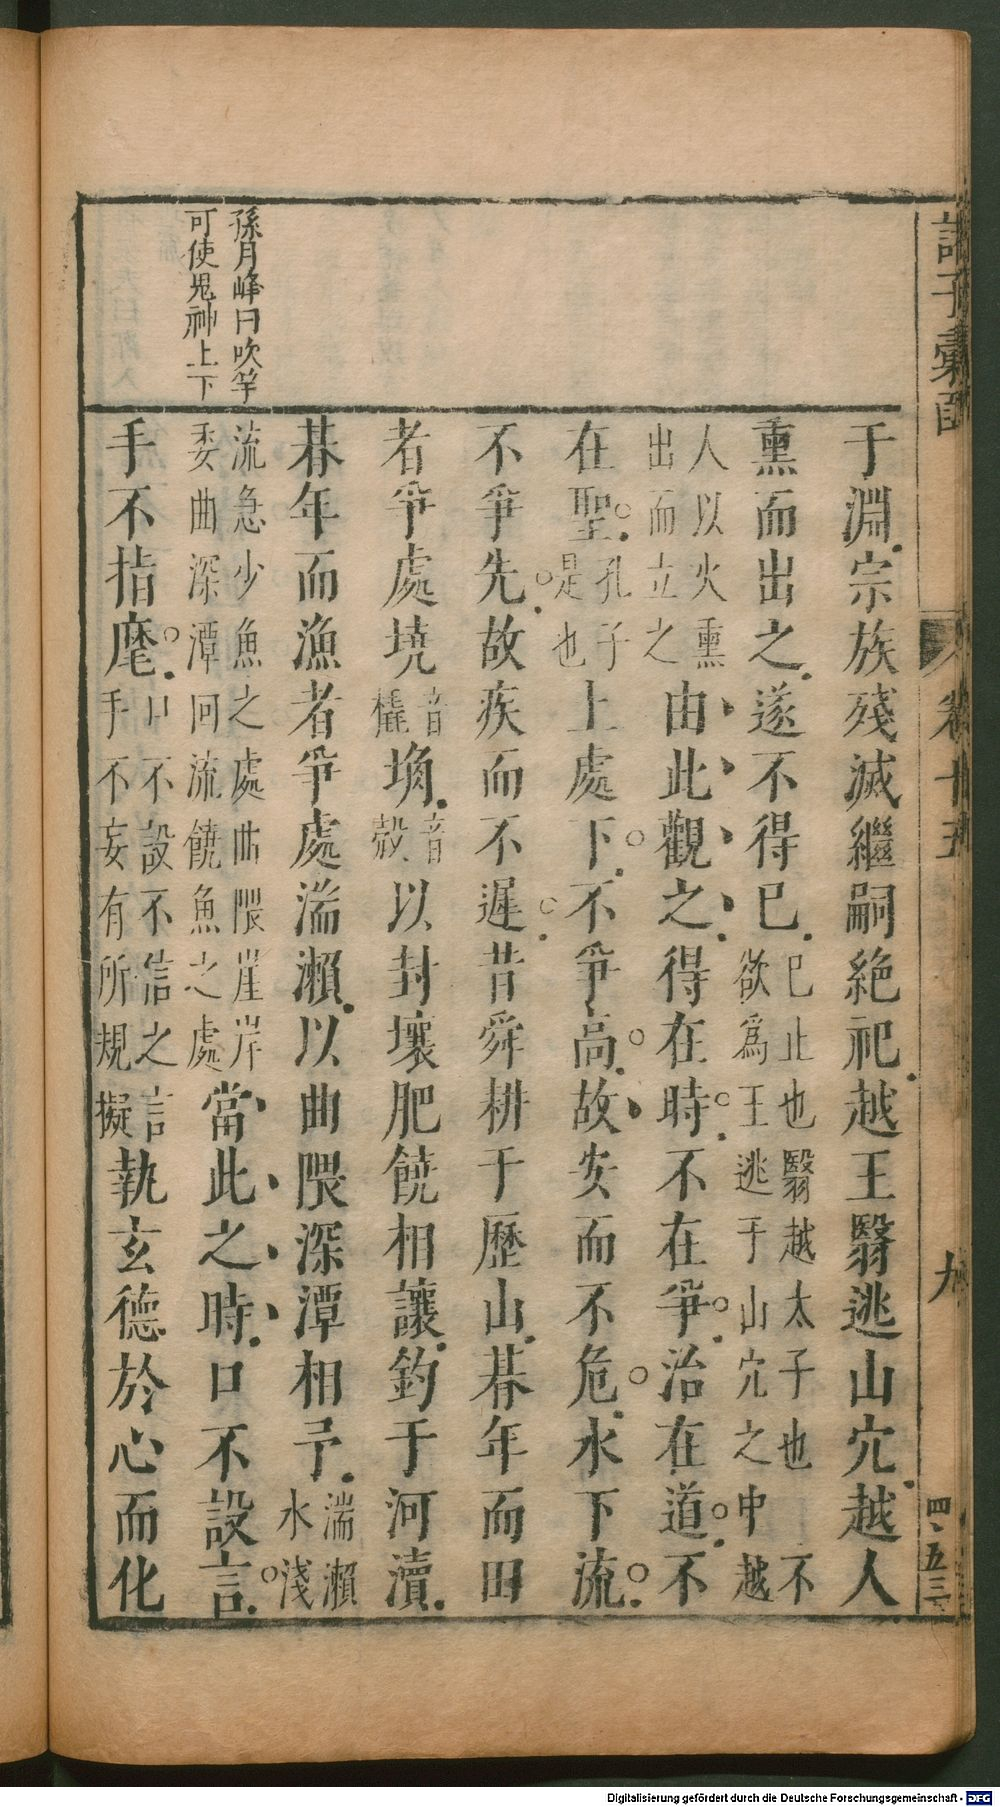 諸子彙函
卷十五
九
四、五三
孫月峰曰吹竽
可使鬼神上下
于淵宗族殘滅繼嗣絕祀越王翳逃山穴越人
熏而出之遂不得已
已止也翳越太子也不
欲為王逃于山穴之中越
人以火熏
出而立之
由此觀之得在時不在爭治在道不
在聖
孔子
是也
上處下不爭高故安而不危水下流
不爭先故疾而不遲昔舜耕于歷山朞年而田
者爭處墝
音
橇
埆
音
殻
以封壤肥饒相讓釣于河瀆
朞年而漁者爭處湍瀨以曲隈深潭相予
湍瀨
水淺
流急少魚之處曲隈崖岸
委曲深潭回流饒魚之處
當此之時口不設言
手不指麾
口不設不信之言
手不妄有所規擬
執玄德於心而化
Digitalisierung gefördert durch die Deutsche Forschungsgemeinschaft - DFG